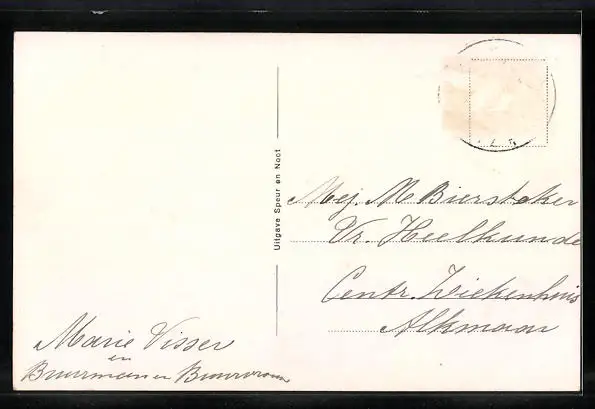 Uitgave Speur en Noot
Mej. M Biersteker
Vr. Heelkunde
Centr. Ziekenhuis
Alkmaar
Marie Visser
en
Buurman en Buurvrouw